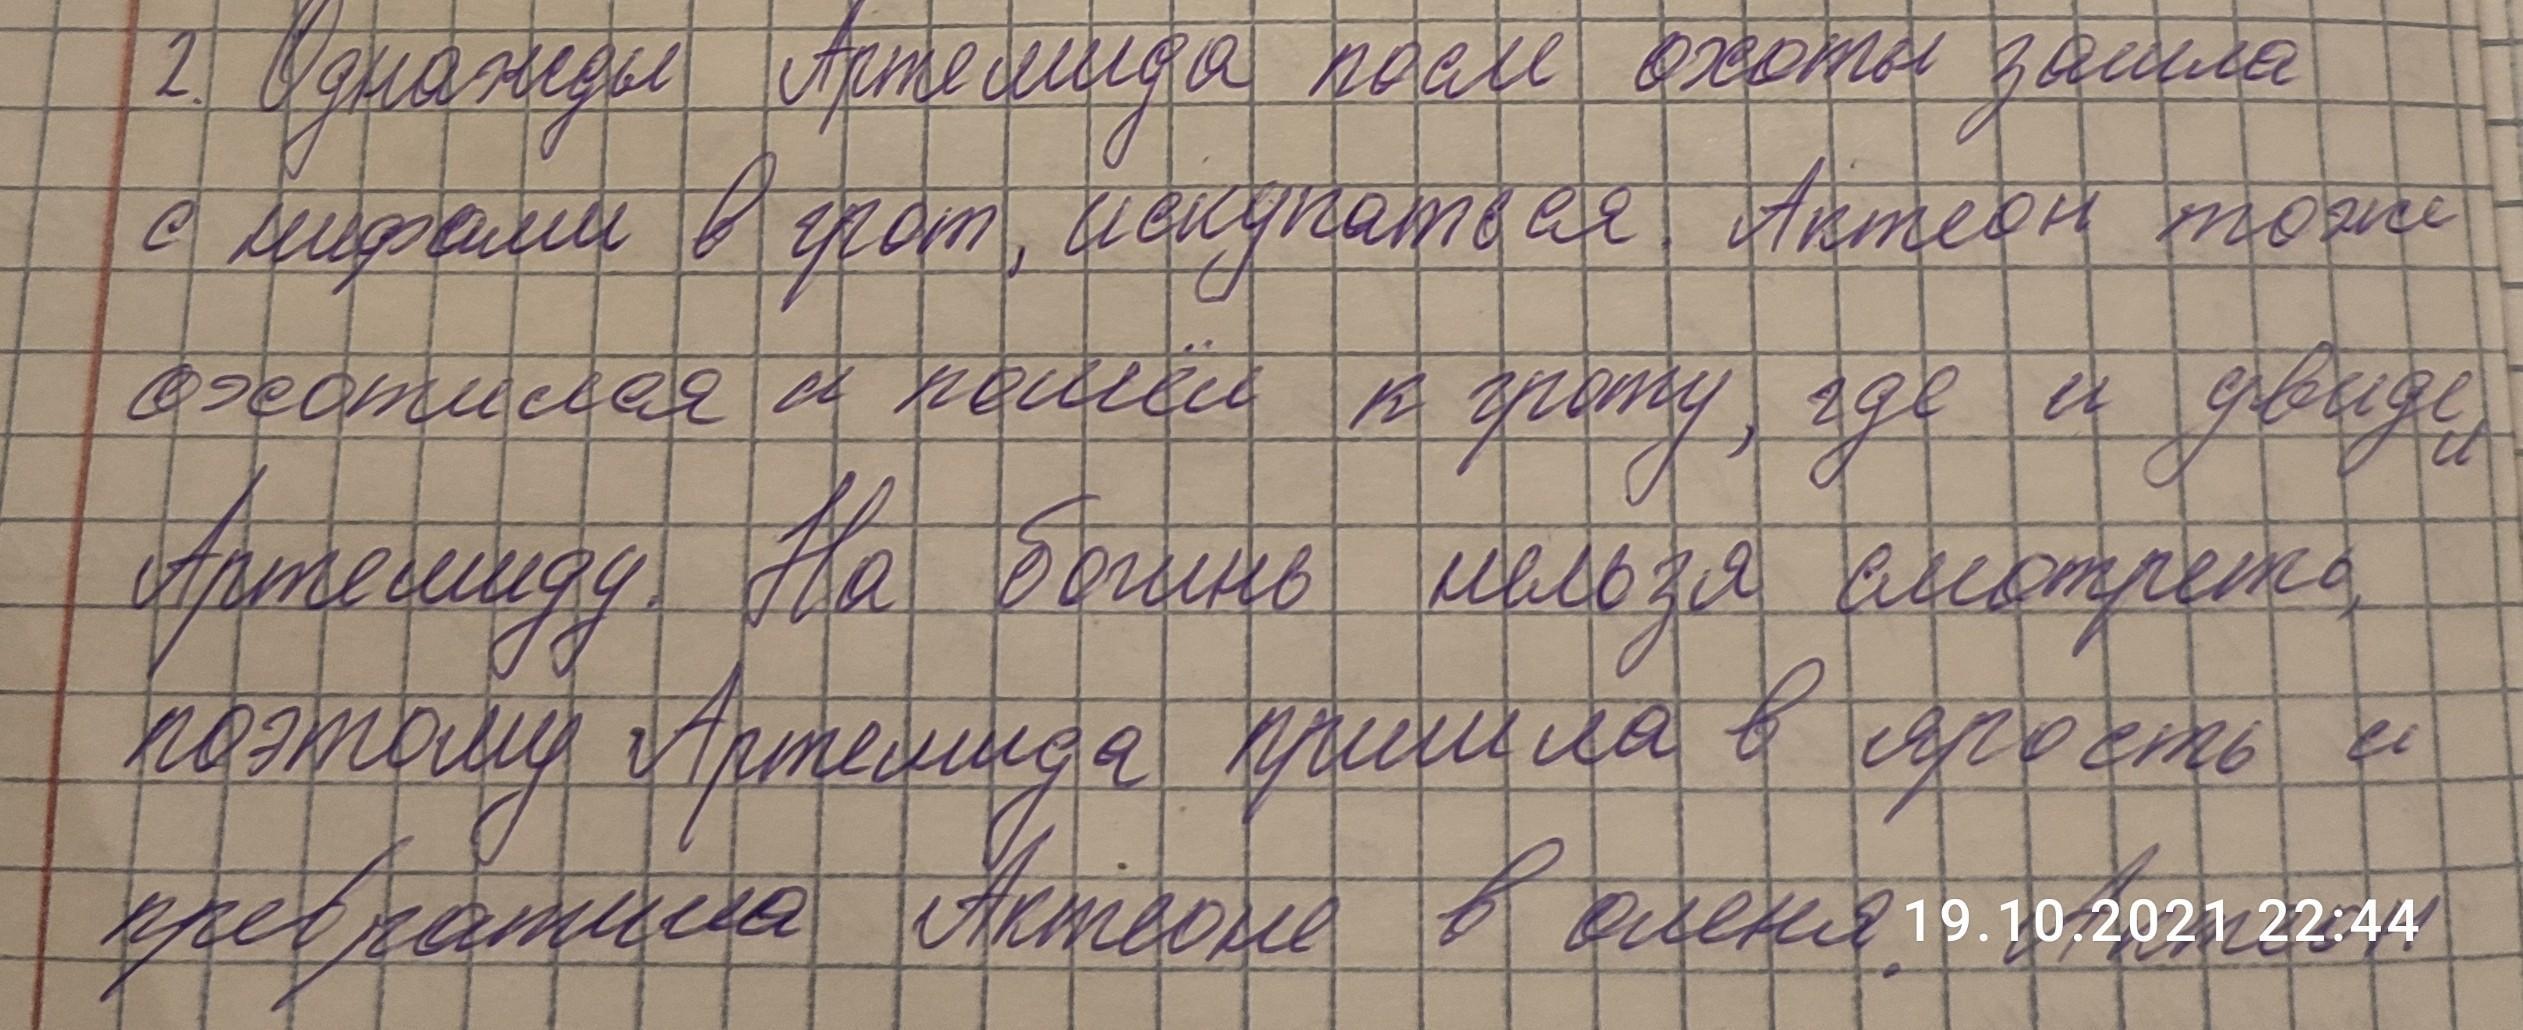 2. Однажды Артемида после охоты зашла
с нифами в грот, искупаться. Актеон тоже
охотился и пошёл к гроту, где и увидел
Артемиду. На богинь нельзя смотреть,
поэтому Артемида пришла в ярость и
превратила Актеоне в оленя. Актеон
19.10.2021 22:44